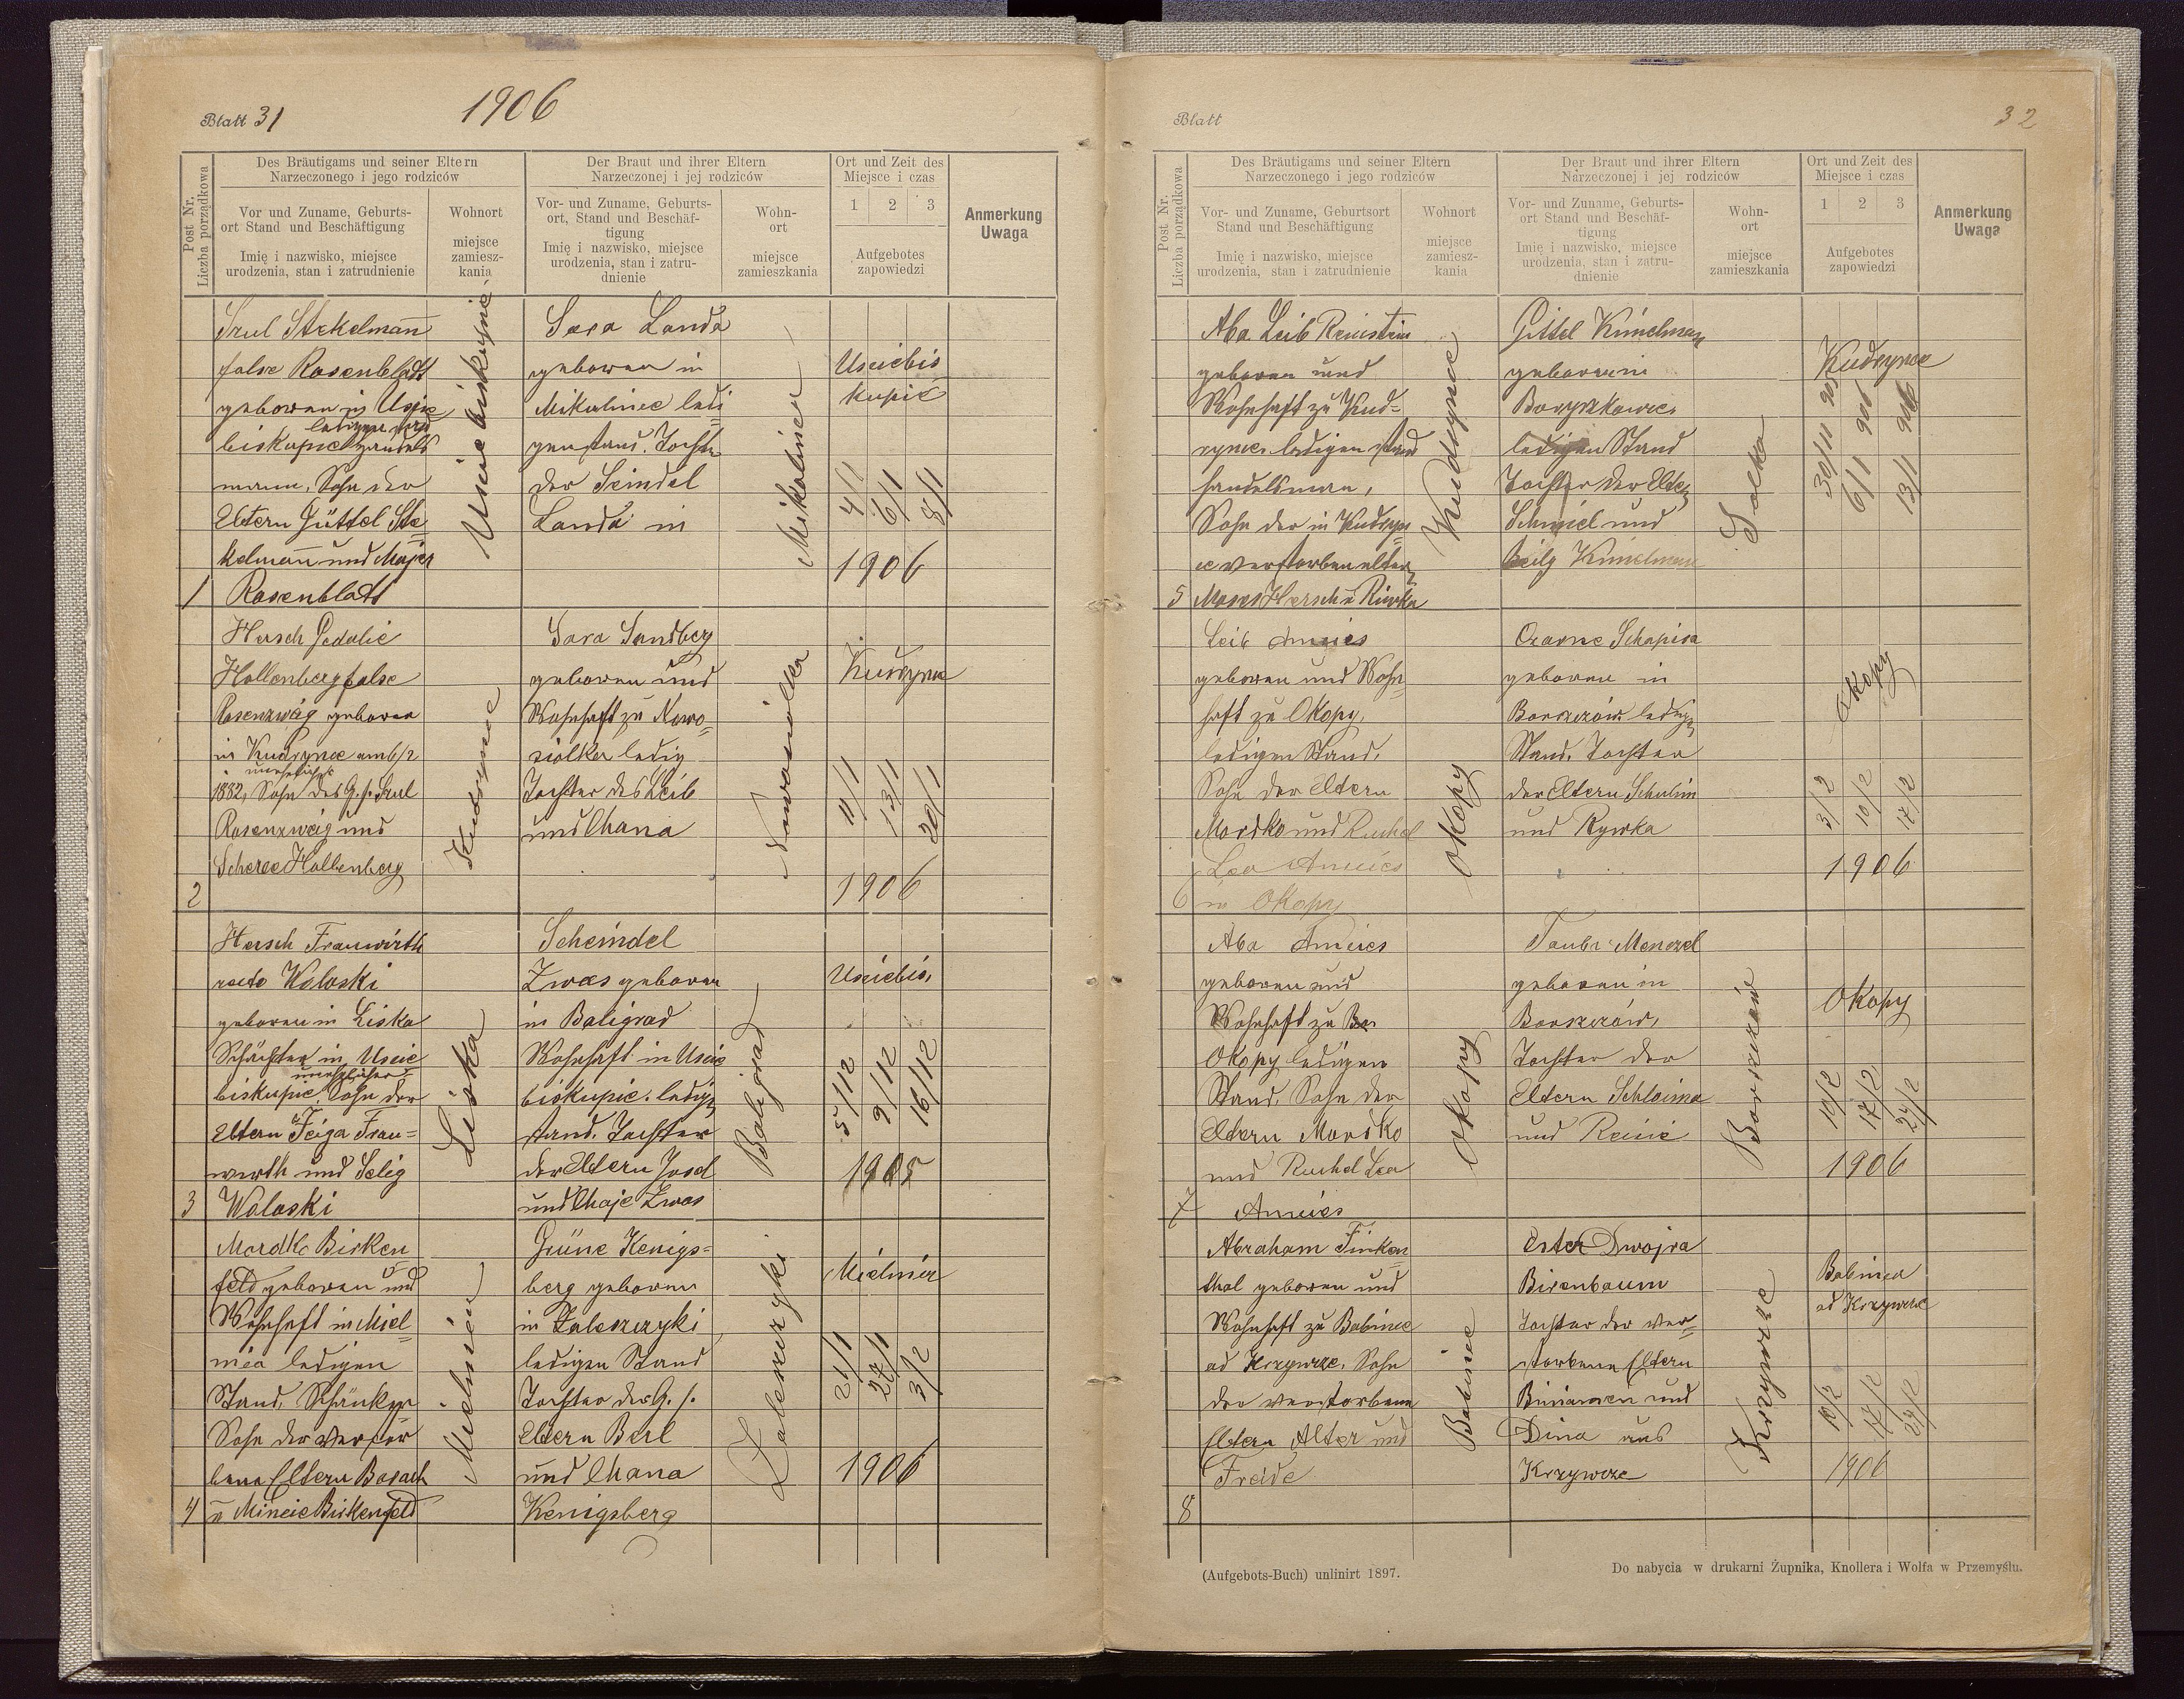 Blatt 31
1906
Post Nr.
Liczba porządkowa
Des Bräutigams und seiner Eltern
Narzeczonego i jego rodziców
Der Braut und ihrer Eltern
Narzeczonej i jej rodziców
Ort und Zeit des
Miejsce i czas
Vor und Zuname, Geburts-
ort Stand und Beschäftigung
Imię i nazwisko, miejsce
urodzenia, stan i zatrudnienie
Wohnort
miejsce
zamiesz-
kania
Vor- und Zuname, Geburts-
ort, Stand und Beschäf-
tigung
Imię i nazwisko, miejsce
urodzenia, stan i zatru-
dnienie
Wohn-
ort
miejsce
zamieszkania
1 2 3
Aufgebotes
zapowiedzi
Anmerkung
Uwaga
Srul Stekelmann
false Rosenblatt
geboren in Uscie
biskupie Handels
mann, Sohn der
Eltern Güttel Ste
kelmann und Majer
1 Rosenblatt
Usciebiskupie
Sara Landa
geboren in
Mikulince ledi
gen stand. Tochter
der Seindel
Landa in
Mikulince
Usciebis
kupie
4/1 6/1 8/1
1906
Hersch Gedalie
Hollenberg false
Rosenzweig geboren
in Kudrynce am 6/2
unehelicher
1882, Sohn des G. f. Srul
Rosenzweig und
Scheree Hollenberg
2
Kudrynce
Sara Sandberg
geboren und
Wohnhaft zu Nowo
siolka ledig
Tochter des Leib
und Chana
Nowosiolka
Kudrynce
11/1 13/1 20/1
1906
Hersch Frauwirth
recte Woloski
geboren in Liska
Schächter in Uscie
unehelicher
biskupie. Sohn der
Eltern Feiga Frau=
wirth und Selig
3 Woloski
Liska
Scheindel
Zwas geboren
in Baligrad
Wohnhaft in Uscie
biskupie. ledigen
stand. Tochter
der Eltern Josel
und Chaje Zwas
Baligrad
Usciebis.
5/12 9/12 16/12
1905
Mordko Birken
feld geboren und
Wohnhaft in Miel
nica ledigen
Stand, Schänker
Sohn der verstor
bene Eltern Barach
4 u Mincie Birkenfeld
Mielnica
Grüne Kenigs=
berg geboren
in Zaleszczyki
ledigen Stand
Tochter der G. f.
Eltern Berl
und Chana
Kenigsberg
Zaleszczyki
Mielnica
21/1 27/1 3/2
1906
Blatt
32
Post Nr.
Liczba porządkowa
Des Bräutigams und seiner Eltern
Narzeczonego i jego rodziców
Der Braut und ihrer Eltern
Narzeczonej i jej rodziców
Ort und Zeit des
Miejsce i czas
Vor- und Zuname, Geburtsort
Stand und Beschäftigung
Imię i nazwisko, miejsce
urodzenia, stan i zatrudnienie
Wohnort
miejsce
zamiesz-
kania
Vor- und Zuname, Geburts-
ort Stand und Beschäf-
tigung
Imię i nazwisko, miejsce
urodzenia, stan i zatru-
dnienie
Wohn-
ort
miejsce
zamieszkania
1 2 3
Aufgebotes
zapowiedzi
Anmerkung
Uwaga
Aba Leib Reinstein
geboren und
Wohnhaft zu Kud-
rynce. ledigen stand
handelsman,
Sohn der in Kudryn
ce verstorben eltern
5 Moses Hersch u Riwka
Kudrynce
Gittel Kimelman
geboren in
Boryszkowce.
ledigen Stand
Tochter der Eltern
Schmiel und
Beily Kimelman
Kudrynce
30/11 905 6/1 906 13/1 906
Leib Ameies
geboren und Wohn
haft zu Okopy.
ledigen Stand.
Sohn der Eltern
Mordko und Ruchel
Lea Ameies
6 in Okopy
Okopy
Czarne Schapira
geboren in
Borszczów ledigen
Stand. Tochter
der Eltern Schulim
und Rywka
Okopy
3/2 10/2 17/2
1906
Aba Ameies
geboren und
Wohnhaft zu
Okopy ledigen
Stand. Sohn der
Eltern Mordko
und Ruchel Lea
7 Ameies
Okopy
Taube Menczel
geboren in
Borszczów,
Tochter der
Eltern Schloima
und Reisie
Borszczów
Okopy
10/2 17/2 24/2
1906
Abraham Finken
thal geboren und
Wohnhaft zu Babince
ad Krzywcze, Sohn
der verstorbene
Eltern Alter und
Freide
8
Babince
Ester Dwojra
Birenbaum
Tochter der ver=
storbenen Eltern
Biniamen und
Dina aus
Krzywcze
Krzywcze
Babince
ad Krzywcze
10/2 17/2 24/2
1906
(Aufgebots-Buch) unlinirt 1897.
Do nabycia w drukarni Żupnika, Knollera i Wolfa w Przemyślu.